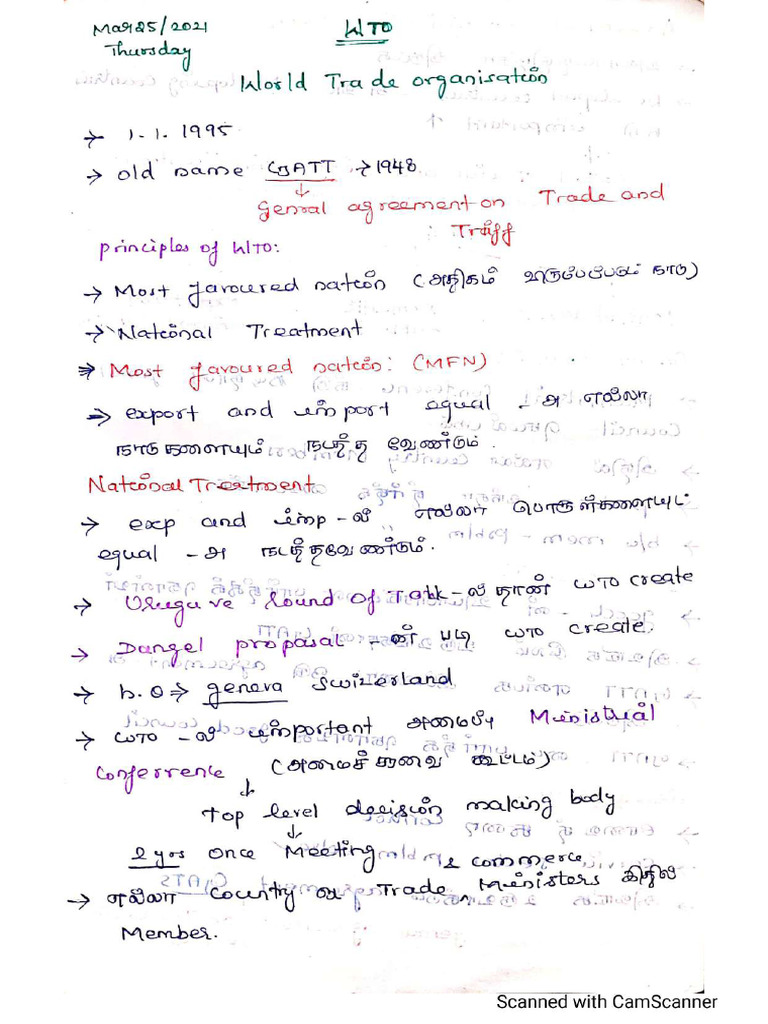 Mar 25/2021 WTO
Thursday
World Trade organisation
→ 1.1.1995
→ old name GATT → 1948
↓
Genral agreement on Trade and
Traiff
principles of WTO:
→ Most favoured nation (அதிகம் விரும்பப்படும் நாடு)
→ National Treatment
⇒ Most favoured nation: (MFN)
→ export and import equal - அ எல்லா
நாடுகளையும் நடத்த வேண்டும்.
National Treatment
→ exp and imp - ல் எல்லா பொருள்களையும்
equal - அ நடத்தவேண்டும்.
→ Uruguve round of Talk - ல தான் WTO create
→ Dangel proposal - ன் படி WTO create.
→ h.o ⇒ geneva Swizerland
→ WTO - ல் important அமைப்பு Ministrual
Conferrence (அமைச்சரவை கூட்டம்)
↓
Top level decision making body
↓
2 yrs once Meeting & commerce
→ எல்லா country ல Trade Ministers இதில்
Member.
Scanned with CamScanner